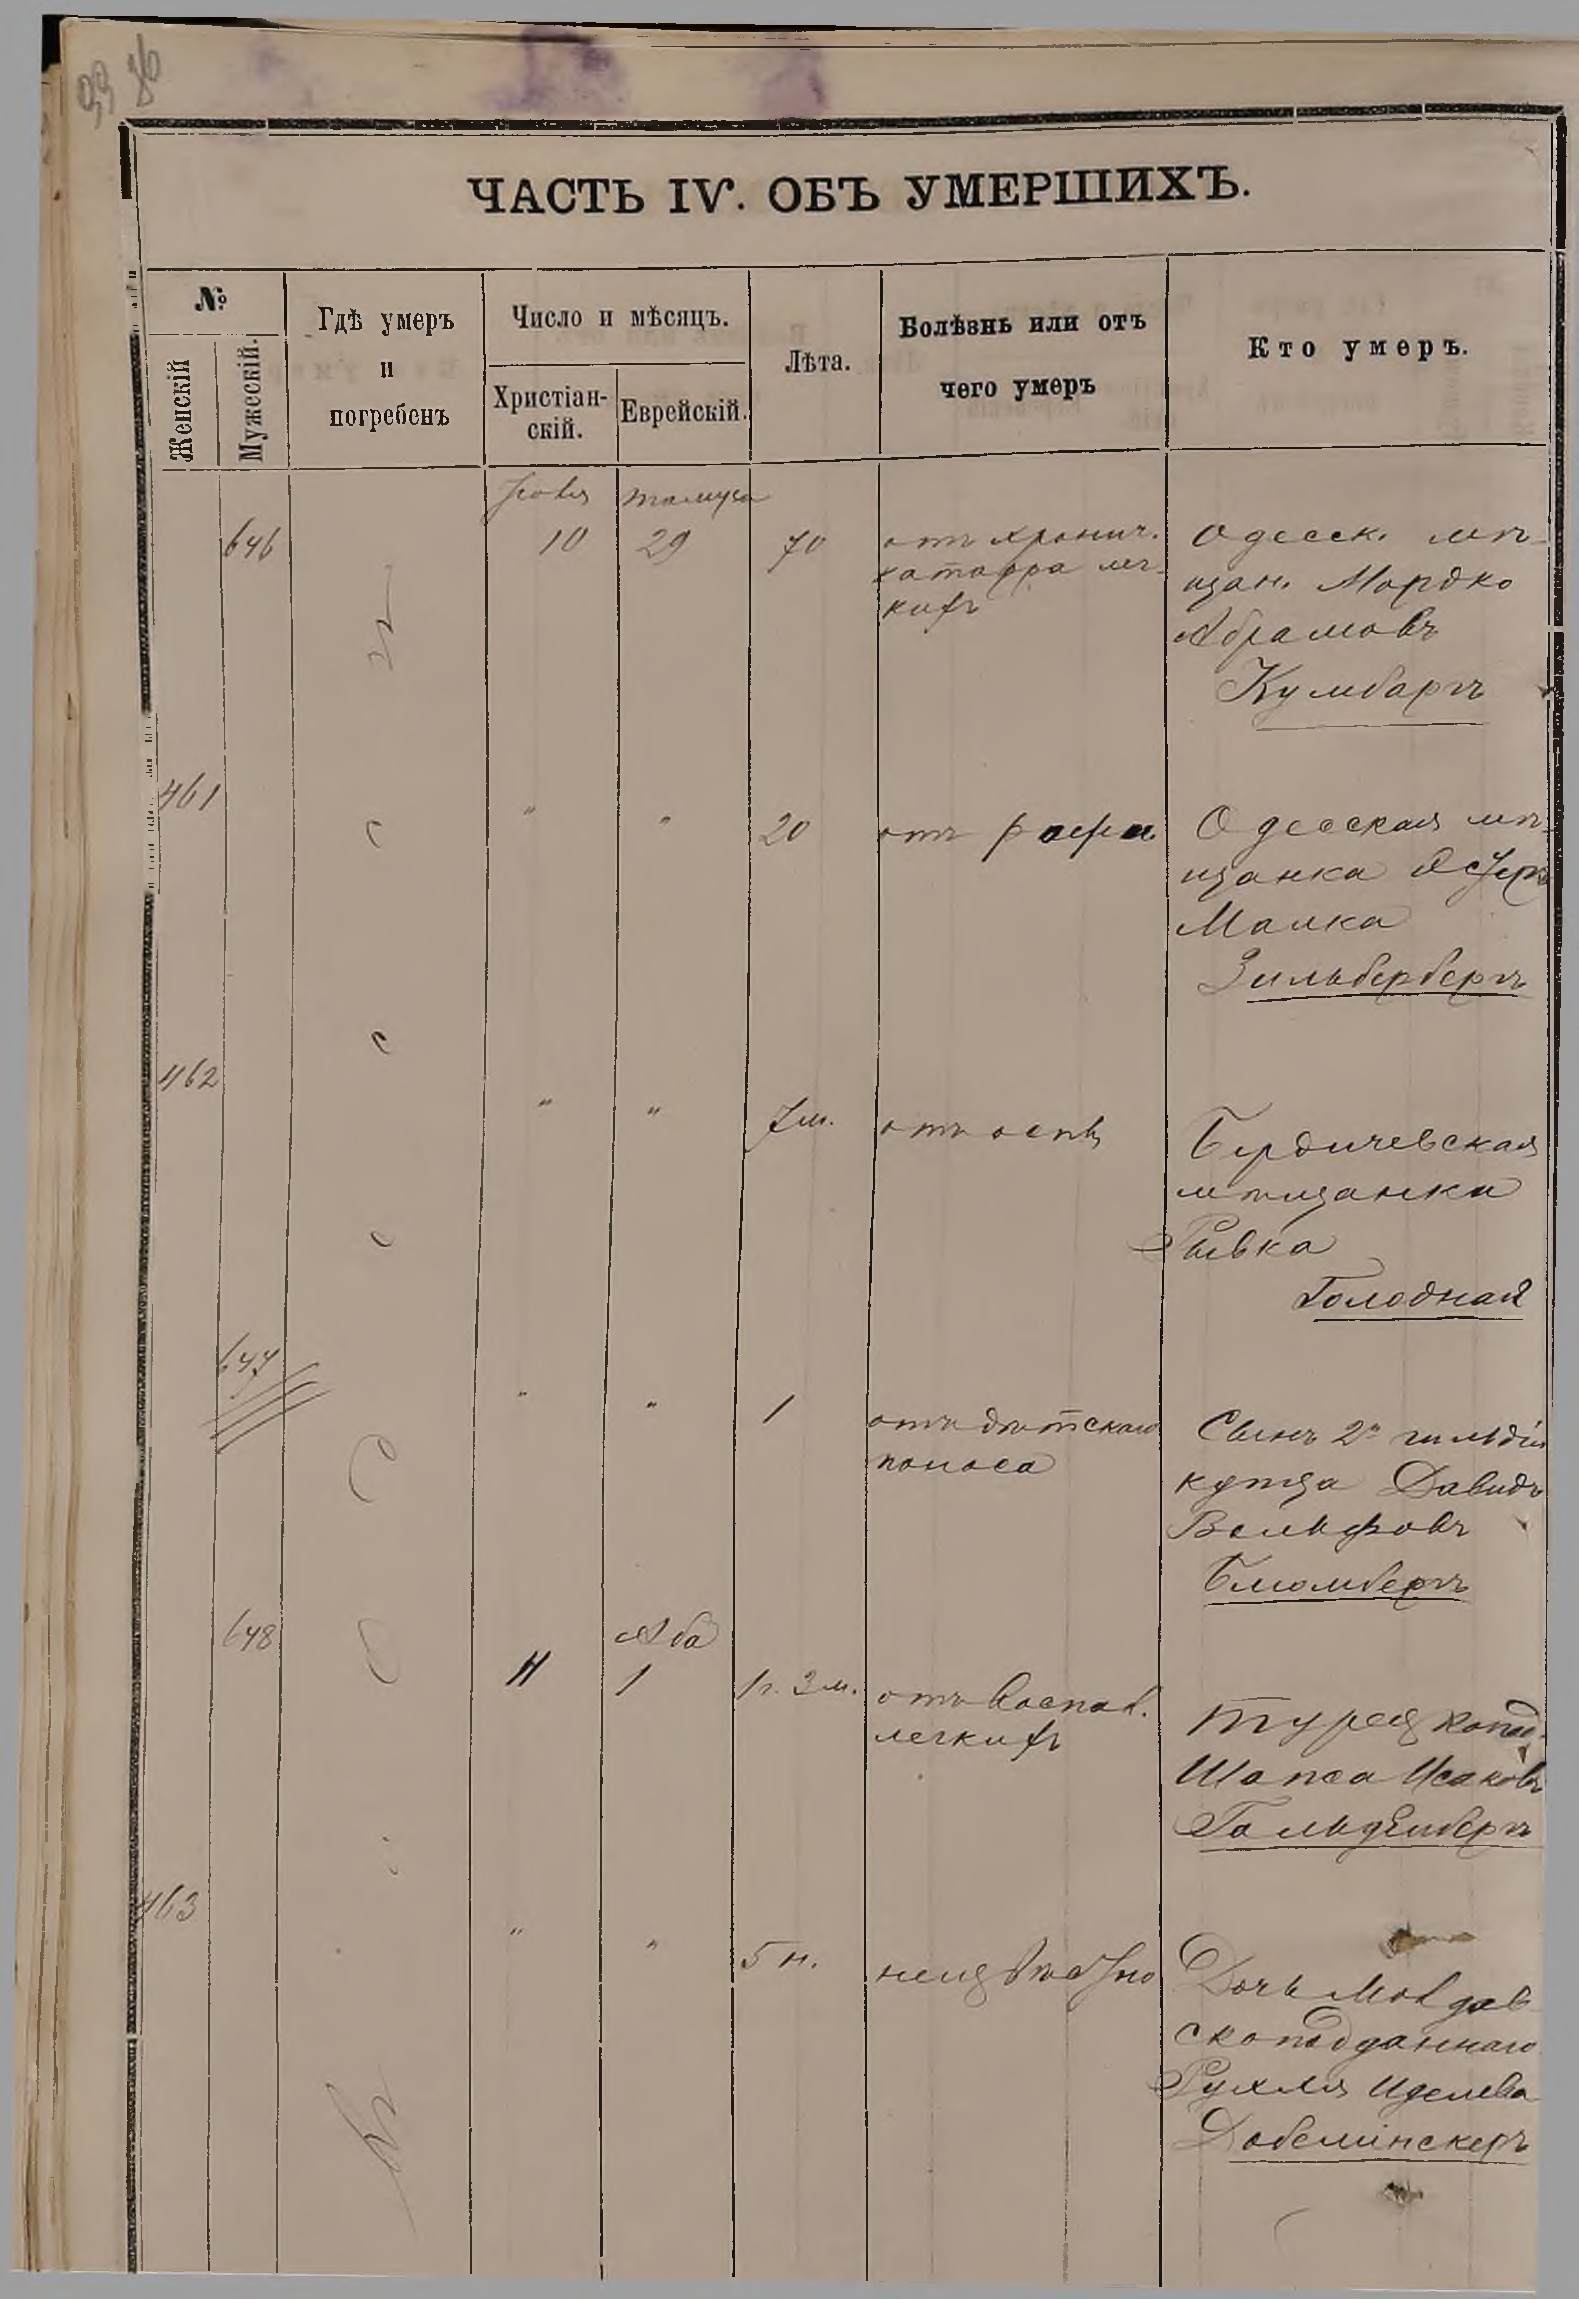 33 86
ЧАСТЬ IV. ОБЪ УМЕРШИХЪ.
№
Женскій
Мужескій.
Гдѣ умеръ
и
погребенъ
Число и мѣсяцъ.
Христіан-
скій.
Еврейскій.
Лѣта.
Болѣзнь или отъ
чего умеръ
Кто умеръ.
Іюля
тамуза
646
10
29
70
отъ хронич.
катарра лег-
кихъ
Одесск. мѣ-
щан. Мордко
Абрамовъ
Кумбаргъ
461
"
"
20
отъ
Одесская мѣ-
щанка
Малка
Зильбербергъ
462
"
"
7 м.
отъ оспы
Бердичевская
мѣщанка
Рывка
Голодная
647
"
"
1
отъ дѣтскаго
поноса
Сынъ 2й гильдіи
купца Давидъ
Вольфовъ
Блюмбергъ
648
11
Аба
1
1 г. 3 м.
отъ воспал.
легкихъ
Турецкопод.
Шапса Исаковъ
Гольденбергъ
463
"
"
5 н.
неизвѣстно
Дочь Молдав-
скоподданнаго
Рухля Иделева